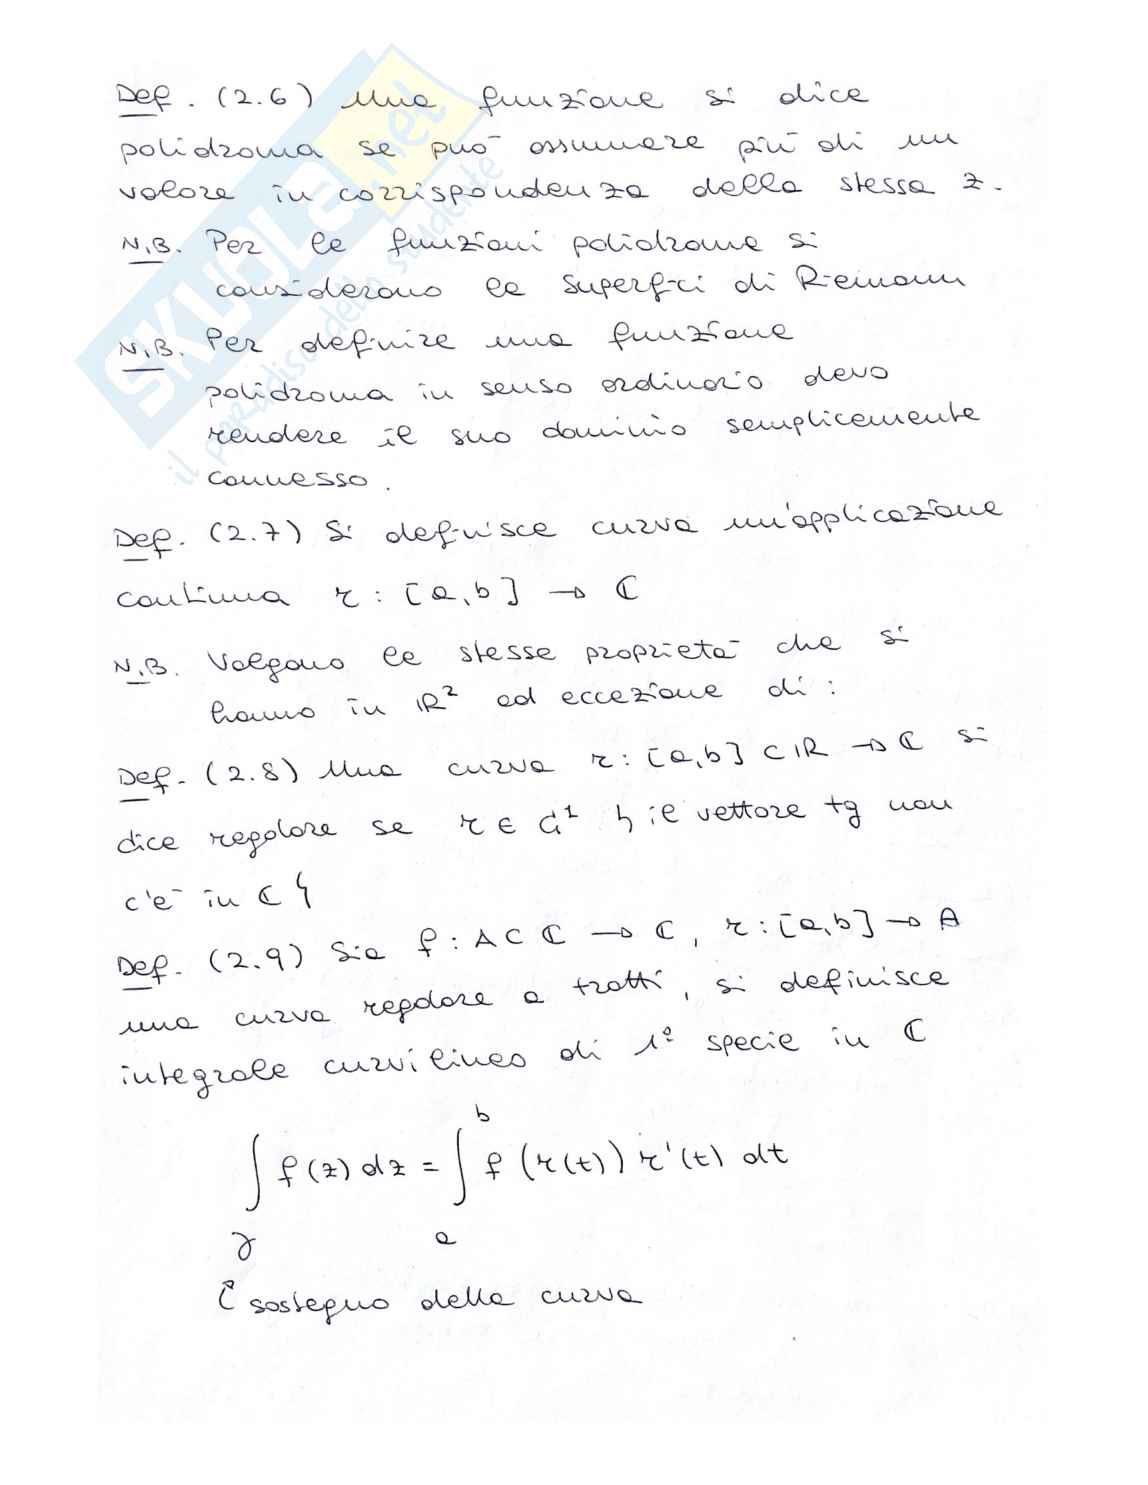 Def. (2.6) Una funzione si dice
polidroma se può assumere più di un
valore in corrispondenza della stessa z.
N.B. Per le funzioni polidrome si
considerano le superfici di Riemann
N.B. Per definire una funzione
polidroma in senso ordinario devo
rendere il suo dominio semplicemente
connesso.
Def. (2.7) Si definisce curva un'applicazione
continua r : [a,b] → ℂ
N.B. Valgono le stesse proprietà che si
hanno in ℝ² ad eccezione di :
Def. (2.8) Una curva r : [a,b] ⊂ ℝ → ℂ si
dice regolare se r ∈ C¹ { il vettore tg non
c'è in ℂ }
Def. (2.9) Sia f : A ⊂ ℂ → ℂ, r : [a,b] → A
una curva regolare a tratti, si definisce
integrale curvilineo di 1ª specie in ℂ
∫_γ f(z) dz = ∫_a^b f(r(t)) r'(t) dt
sostegno della curva
SKUOLA.net
il paradiso dello studente